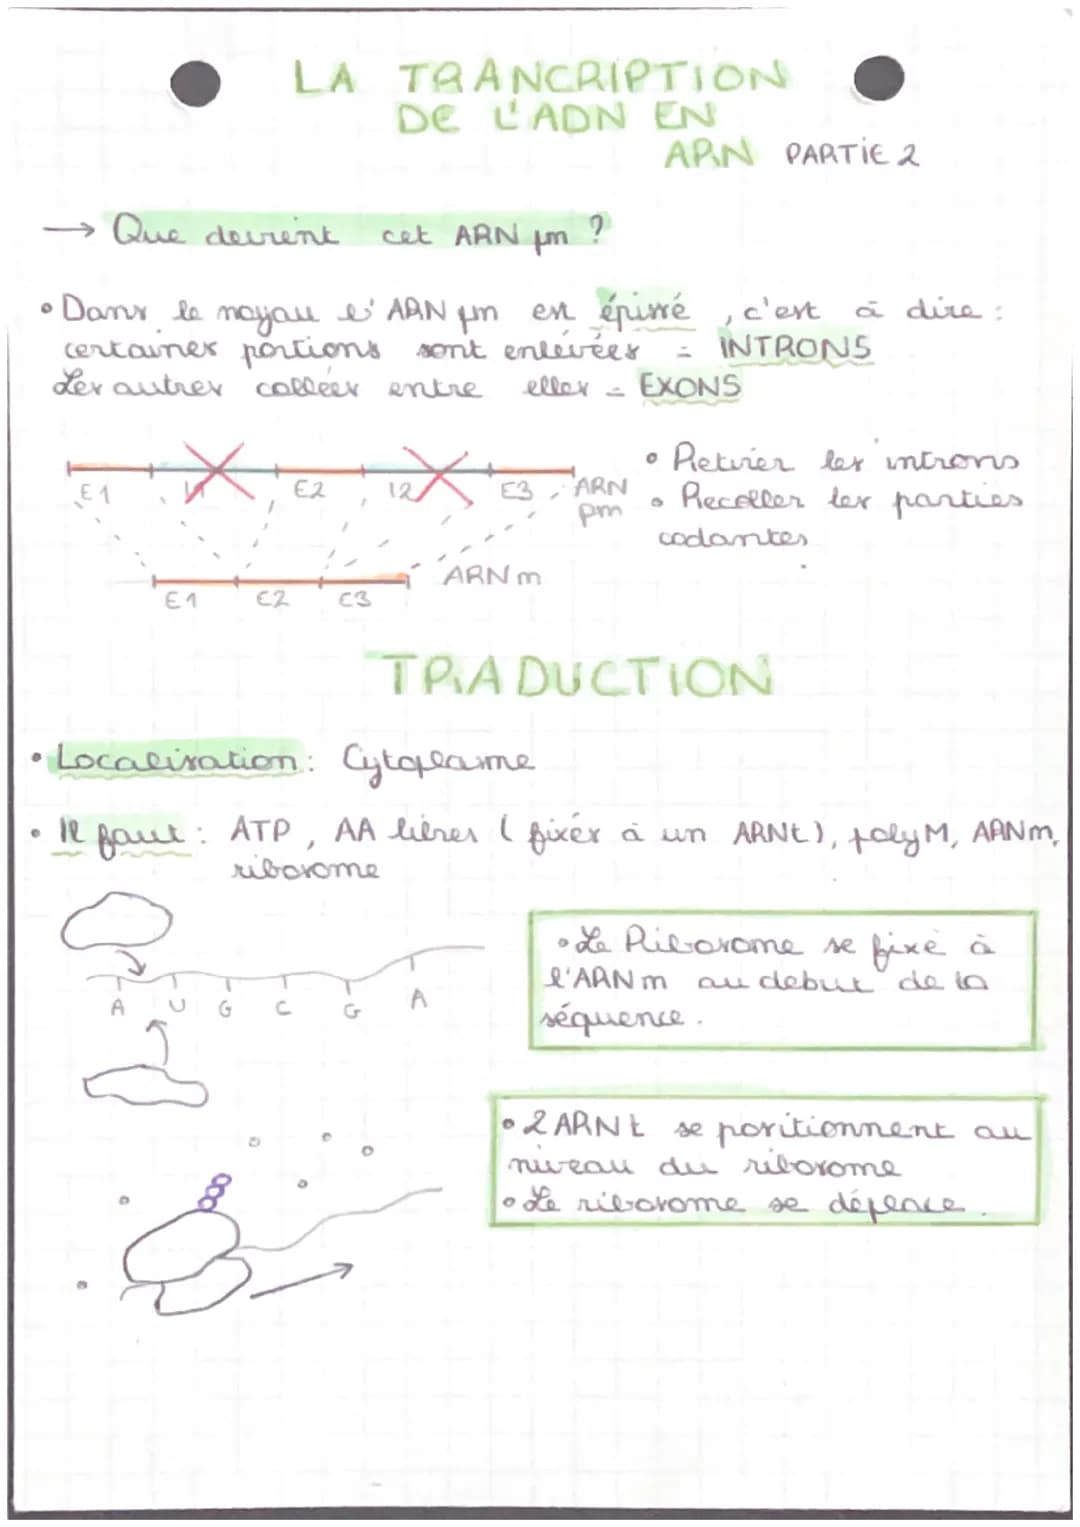 LA TRANCRIPTION
DE L'ADN EN
ARN PARTIE 2
→ Que devient cet ARN pm ?
• Dans le noyau l'ARN pm est épissé, c'est à dire :
certaines portions sont enlevées = INTRONS
Les autres collées entre elles = EXONS
E1 I1 E2 I2 E3 ARN
pm
• Retirer les introns
• Recoller les parties
codantes
ARN m
E1 E2 E3
TRADUCTION
• Localisation : Cytoplasme
• Il faut : ATP, AA libres ( fixés à un ARNt), polyM, ARNm,
ribosome
A U G C G A
• Le Ribosome se fixe à
l'ARN m au debut de la
séquence.
• 2 ARN t se positionnent au
niveau du ribosome
• Le ribosome se déplace.